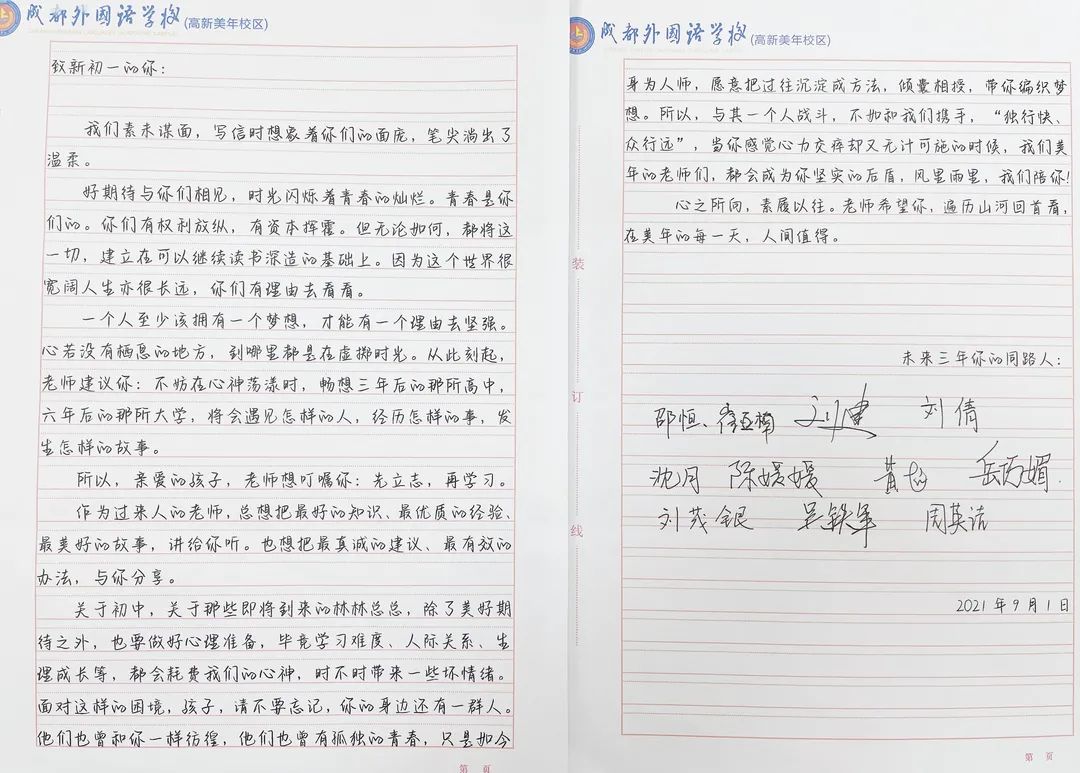 成都外国语学校(高新美年校区)
致新初一的你：
我们素未谋面，写信时想象着你们的面庞，笔尖淌出了
温柔。
好期待与你们相见，时光闪烁着青春的灿烂。青春是你
们的。你们有权利放纵，有资本挥霍。但无论如何，都将这
一切，建立在可以继续读书深造的基础上。因为这个世界很
宽阔人生亦很长远，你们有理由去看看。
一个人至少该拥有一个梦想，才能有一个理由去坚强。
心若没有栖息的地方，到哪里都是在虚掷时光。从此刻起，
老师建议你：不妨在心神荡漾时，畅想三年后的那所高中，
六年后的那所大学，将会遇见怎样的人，经历怎样的事，发
生怎样的故事。
所以，亲爱的孩子，老师想叮嘱你：先立志，再学习。
作为过来人的老师，总想把最好的知识、最优质的经验、
最美好的故事，讲给你听。也想把最真诚的建议、最有效的
办法，与你分享。
关于初中，关于那些即将到来的林林总总，除了美好期
待之外，也要做好心理准备，毕竟学习难度、人际关系、生
理成长等，都会耗费我们的心神，时不时带来一些坏情绪。
面对这样的困境，孩子，请不要忘记，你的身边还有一群人。
他们也曾和你一样彷徨，他们也曾有孤独的青春，只是如今
第 页
成都外国语学校(高新美年校区)
身为人师，愿意把过往沉淀成方法，倾囊相授，带你编织梦
想。所以，与其一个人战斗，不如和我们携手，“独行快、
众行远”，当你感觉心力交瘁却又无计可施的时候，我们美
年的老师们，都会成为你坚实的后盾，风里雨里，我们陪你！
心之所向，素履以往。老师希望你，遍历山河回首看，
在美年的每一天，人间值得。
装
订
线
未来三年你的同路人：
邵恒、徐亚楠 刘倩
沈月 陈媛媛
刘茂银 吴铁军 周英洁
2021年9月1日
第 页